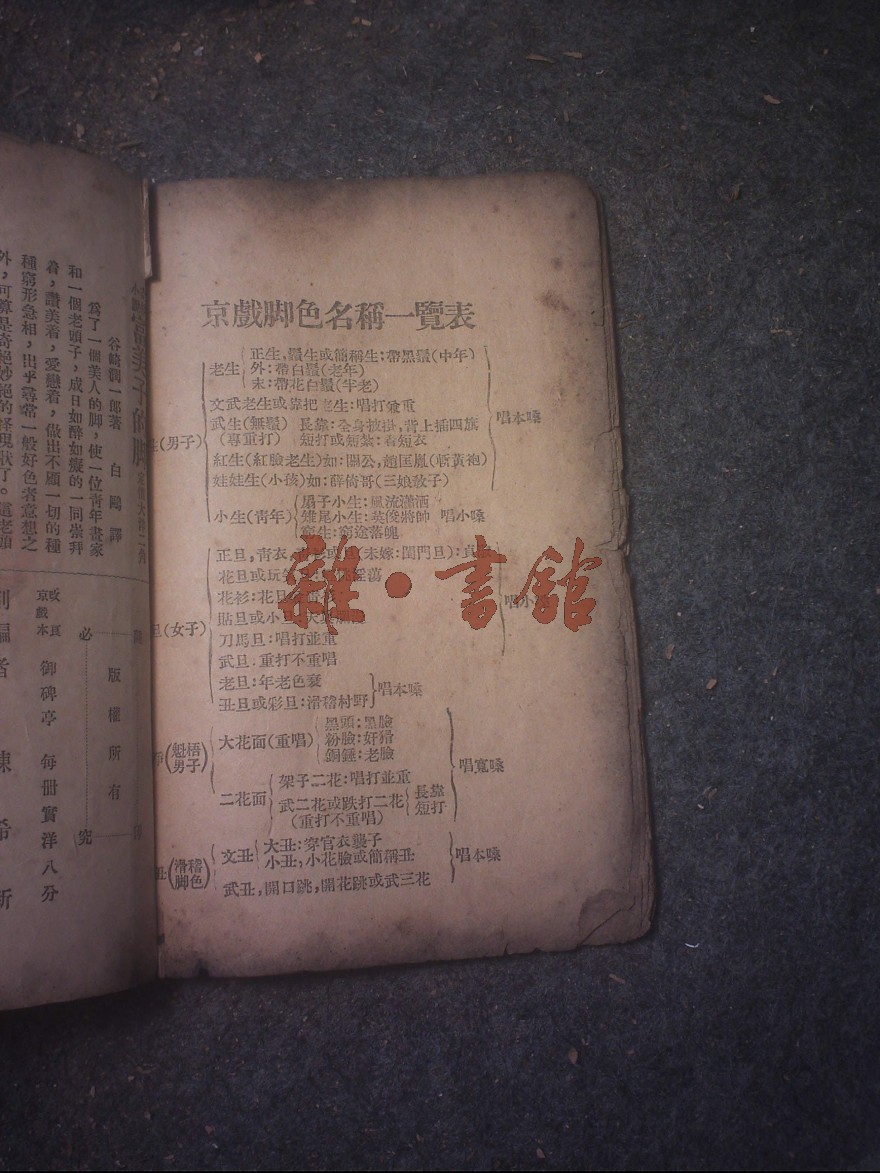 京戲脚色名稱一覽表
正生,鬚生或簡稱生:帶黑鬚(中年)
老生 外:帶白鬚(老年)
末:帶花白鬚(半老)
文武老生或靠把老生:唱打並重
唱本嗓
武生(無鬚) 長靠:全身披掛,背上插四旗
(男子) (專重打) 短打或短紮:着短衣
紅生(紅臉老生)如:關公,趙匡胤(斬黃袍)
娃娃生(小孩)如:薛倚哥(三娘敎子)
扇子小生:風流瀟洒
小生(靑年) 雉尾小生:英俊將帥 唱小嗓
窮生:窮途落魄
正旦,靑衣,或旦(未嫁:閨門旦):
花旦或
花衫:花旦
唱小
旦(女子) 貼旦或小旦:
刀馬旦:唱打並重
武旦:重打不重唱
老旦:年老色衰
唱本嗓
丑旦或彩旦:滑稽村野
黑頭:黑臉
(魁梧男子) 大花面(重唱) 粉臉:奸猾
銅錘:老臉
唱寬嗓
架子二花:唱打並重
二花面 武二花或跌打二花 長靠
短打
(重打不重唱)
大丑:穿官衣襲子
丑(滑稽脚色) 文丑 小丑,小花臉或簡稱丑 唱本嗓
武丑,開口跳,開花跳或武三花
雜·書館
美子的脚
谷崎潤一郎著 白鷗譯
爲了一個美人的脚,使一位靑年畫家
和一個老頭子,成日如醉如癡的一同崇拜
着,讚美着,愛戀着,做出不顧一切的種
種窮形急相,出乎尋常一般好色者意想之
外,可算是奇絕妙絕的怪現狀了。這老頭
版權所有
必 究
京戲本 御碑亭 每冊實洋八分
編者 陳希新